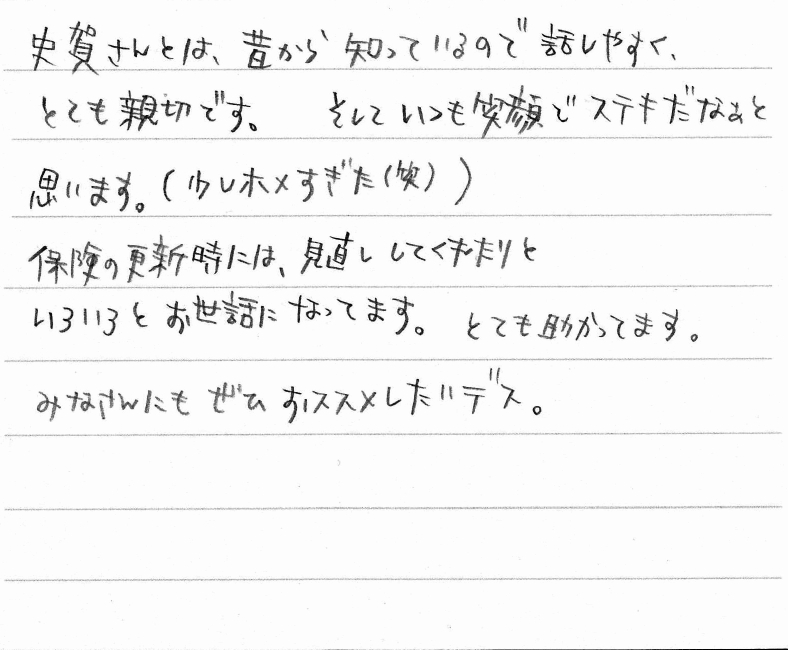 史賀さんとは、昔から知っているので話しやすく、
とても親切です。 そしていつも笑顔でステキだなぁと
思います。(少しホメすぎた(笑))
保険の更新時には、見直ししてくれたりと
いろいろとお世話になってます。 とても助かってます。
みなさんにもぜひおススメしたいデス。